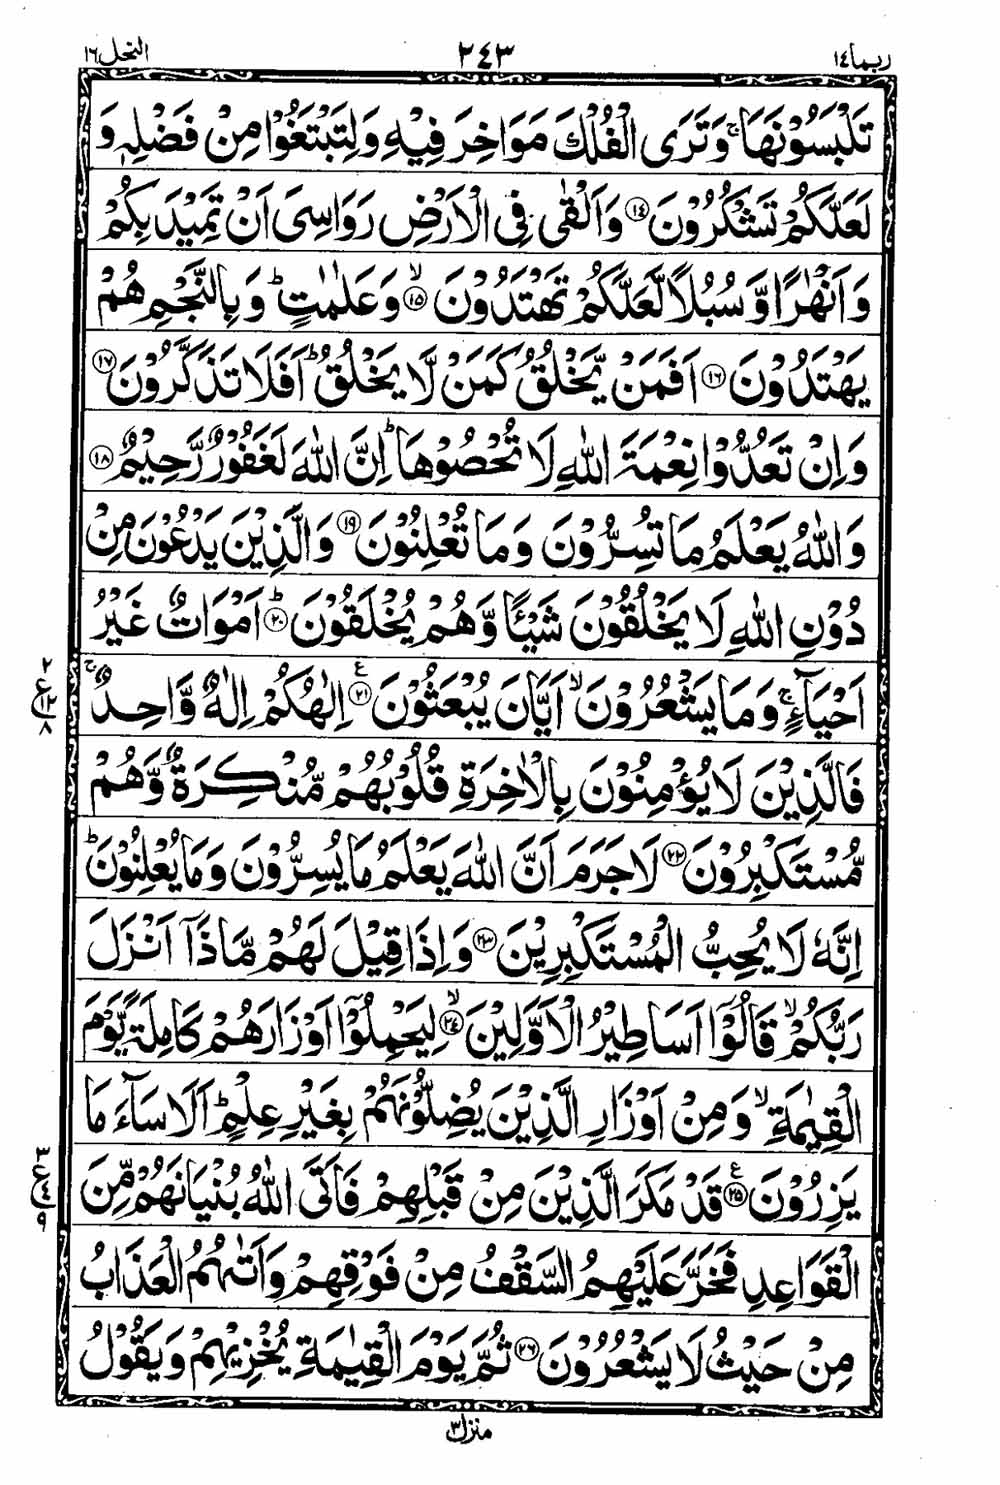 ربما ١٤ ٢٤٣ النحل ١٦
تَلْبَسُوْنَهَا ۚ وَتَرَى الْفُلْكَ مَوَاخِرَ فِيْهِ وَلِتَبْتَغُوْا مِنْ فَضْلِهٖ وَ
لَعَلَّكُمْ تَشْكُرُوْنَ ﴿١٤﴾ وَاَلْقٰى فِى الْاَرْضِ رَوَاسِىَ اَنْ تَمِيْدَ بِكُمْ
وَاَنْهٰرًا وَّ سُبُلًا لَّعَلَّكُمْ تَهْتَدُوْنَ ۙ﴿١٥﴾ وَعَلٰمٰتٍ ؕ وَبِالنَّجْمِ هُمْ
يَهْتَدُوْنَ ﴿١٦﴾ اَفَمَنْ يَّخْلُقُ كَمَنْ لَّا يَخْلُقُ ؕ اَفَلَا تَذَكَّرُوْنَ ﴿١٧﴾
وَاِنْ تَعُدُّوْا نِعْمَةَ اللّٰهِ لَا تُحْصُوْهَا ؕ اِنَّ اللّٰهَ لَغَفُوْرٌ رَّحِيْمٌ ﴿١٨﴾
وَاللّٰهُ يَعْلَمُ مَا تُسِرُّوْنَ وَمَا تُعْلِنُوْنَ ﴿١٩﴾ وَالَّذِيْنَ يَدْعُوْنَ مِنْ
دُوْنِ اللّٰهِ لَا يَخْلُقُوْنَ شَيْـًٔا وَّهُمْ يُخْلَقُوْنَ ؕ﴿٢٠﴾ اَمْوَاتٌ غَيْرُ
اَحْيَآءٍ ۚ وَمَا يَشْعُرُوْنَ ۙ اَيَّانَ يُبْعَثُوْنَ ﴿٢١﴾ع اِلٰهُكُمْ اِلٰهٌ وَّاحِدٌ ۚ
٢ ع ١٢ ٨
فَالَّذِيْنَ لَا يُؤْمِنُوْنَ بِالْاٰخِرَةِ قُلُوْبُهُمْ مُّنْكِرَةٌ وَّهُمْ
مُّسْتَكْبِرُوْنَ ﴿٢٢﴾ لَا جَرَمَ اَنَّ اللّٰهَ يَعْلَمُ مَا يُسِرُّوْنَ وَمَا يُعْلِنُوْنَ ؕ
اِنَّهٗ لَا يُحِبُّ الْمُسْتَكْبِرِيْنَ ﴿٢٣﴾ وَاِذَا قِيْلَ لَهُمْ مَّاذَآ اَنْزَلَ
رَبُّكُمْ ۙ قَالُوْٓا اَسَاطِيْرُ الْاَوَّلِيْنَ ۙ﴿٢٤﴾ لِيَحْمِلُوْٓا اَوْزَارَهُمْ كَامِلَةً يَّوْمَ
الْقِيٰمَةِ ۙ وَمِنْ اَوْزَارِ الَّذِيْنَ يُضِلُّوْنَهُمْ بِغَيْرِ عِلْمٍ ؕ اَلَا سَآءَ مَا
يَزِرُوْنَ ﴿٢٥﴾ع قَدْ مَكَرَ الَّذِيْنَ مِنْ قَبْلِهِمْ فَاَتَى اللّٰهُ بُنْيَانَهُمْ مِّنَ
الْقَوَاعِدِ فَخَرَّ عَلَيْهِمُ السَّقْفُ مِنْ فَوْقِهِمْ وَاَتٰىهُمُ الْعَذَابُ
مِنْ حَيْثُ لَا يَشْعُرُوْنَ ﴿٢٦﴾ ثُمَّ يَوْمَ الْقِيٰمَةِ يُخْزِيْهِمْ وَيَقُوْلُ
منزل ٣